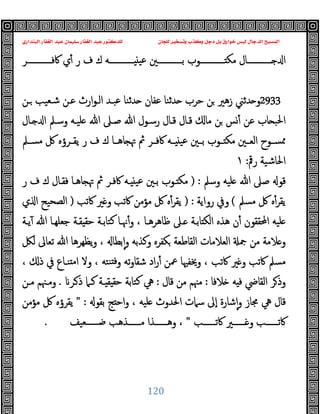 المسيخ الدجال ليس خوارق بل دجل وكذب وتسخير للجان
للدكتور عبد الغفار سليمان عبد الغفار البنداري
الدجـــــال مكتـــــوب بـــــين عينيـــــه ك ف ر أي كافـــــر
2933وحدثني زهير بن حرب حدثنا عفان حدثنا عبـد الـوارث عـن شـعيب بـن
الحبحاب عن أنس بن مالك قال قـال رسـول الله صـلى الله عليـه وسـلم الدجـال
ممســوح العــين مكتــوب بــين عينيــه كافــر ثم تهجاهــا ك ف ر يقــرؤه كل مســلم
الحاشية رقم: ١
قوله صلى الله عليه وسلم : ( مكتـوب بـين عينيـه كافـر ثم تهجاهـا فقـال ك ف ر
يقرأه كل مسلم ) وفي رواية : ( يقرأه كل مؤمن كاتب وغير كاتب ) الصحيح الذي
عليه المحققون أن هذه الكتابة عـلى ظاهرهـا ، وأنهـا كتابـة حقيقـة جعلهـا الله آيـة
وعلامة من جملة العلامات القاطعة بكفره وكذبه وإبطاله ، ويظهرها الله تعالى لكل
مسلم كاتب وغير كاتب ، ويخفيها عمن أراد شقاوته وفتنته ، ولا امتنـاع في ذلك ،
وذكر القاضي فيه خلافا : منهم من قال : هي كتابة حقيقيـة كـما ذكرنا . ومنهـم مـن
قال هي مجاز وإشارة إلى سمات الحدوث عليه ، واحتج بقوله : " يقرؤه كل مؤمن
كاتـــب وغـــير كاتـــب " ، وهـــذا مـــذهب ضـــعيف .
120